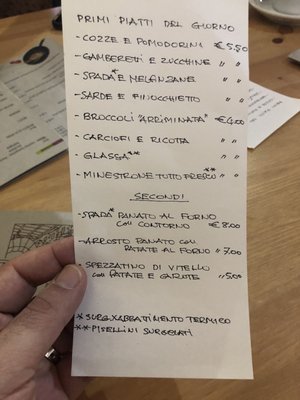 PRIMI PIATTI DEL GIORNO
- COZZE E POMODORINI €5.50
- GAMBERETTI E ZUCCHINE " "
- SPADA* E MELANZANE " "
- SARDE E FINOCCHIETTO " "
- BROCCOLI "ARRIMINATA" €4.00
- CARCIOFI E RICOTTA " "
- GLASSA** " "
- MINESTRONE TUTTO FRESCO** " "
SECONDI
- SPADA* PANATO AL FORNO
CON CONTORNO €8.00
- ARROSTO PANATO CON
PATATE AL FORNO " 7.00
- SPEZZATINO DI VITELLO
CON PATATE E CAROTE " 5.00
* SURG. X ABBATTIMENTO TERMICO
** PISELLINI SURGELATI